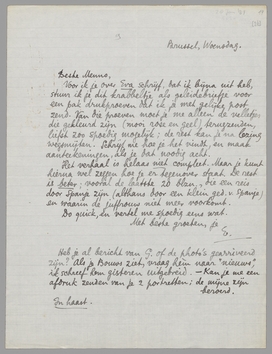 Brussel, Woensdag.
Beste Menno,
Voor ik je over Eva schrijf, dat ik bijna uit heb,
stuur ik je dit krabbeltje als geleidebriefje voor
een pak drukproeven dat ik met gelijke post
zend. Van die proeven moet je me alleen de velletjes
die gekleurd zijn (mooi rose en geel) terugzenden,
liefst zoo spoedig mogelijk; de rest kan je na lezing
wegsmijten. Schrijf me hoe je het vindt, en maak
aanteekeningen, als je dat noodig acht.
Het verhaal is helaas niet compleet. Maar je kunt
hierna wel zeggen hoe er tegenover staat. De rest
is beter; vooral de laatste 20 blzn, die een reis
door Spanje zijn (althans door een klein ged. v. Spanje)
en waarin de juffrouw niet meer voorkomt.
Do quick, en vertel me spoedig eens wat.
Met beste groeten, je
E.
Heb je al bericht van G. of de photo's gearriveerd
zijn? Als je Bouws ziet, vraag hem naar "nieuws",
ik schreef hem gisteren uitgebreid. — Kan je me een
afdruk zenden van je 2 portretten; de mijne zijn
beroerd.
In haast.